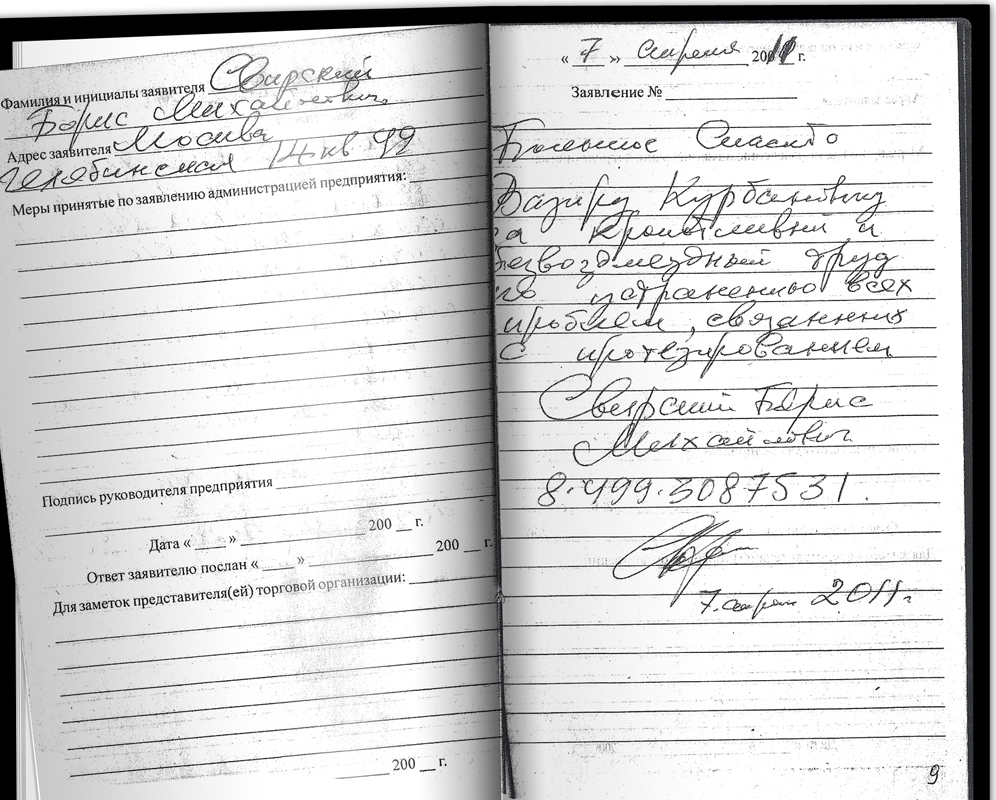 Фамилия и инициалы заявителя Свирский
Борис Михайлович
Адрес заявителя Москва
Челябинская 14 кв 99
Меры принятые по заявлению администрацией предприятия:
Подпись руководителя предприятия
Дата « » 200 г.
Ответ заявителю послан « » 200 г.
Для заметок представителя(ей) торговой организации:
200 г.
« 7 » апреля 2011 г.
Заявление №
Большое Спасибо
Вазиру Курбановичу
за кропотливый и
безвозмездный труд
по устранению всех
проблем, связанных
с протезированием
Свирский Борис
Михайлович
8.499.3087531.
7 апреля 2011г.
9